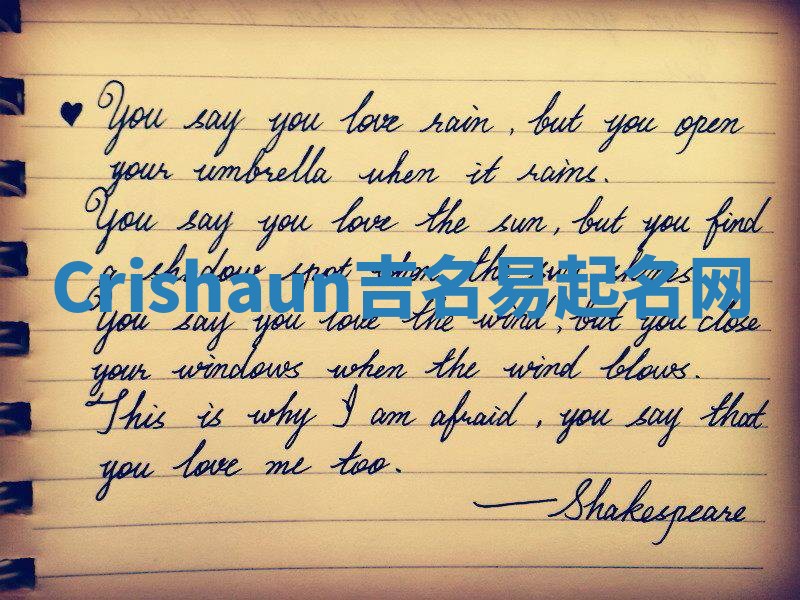 ♥ You say you love rain, but you open
your umbrella when it rains.
You say you love the sun, but you find
a shadow spot when the sun shines.
Crishaun吉名易起名网
You say you love the wind, but you close
your windows when the wind blows.
This is why I am afraid, you say that
you love me too.
—Shakespeare